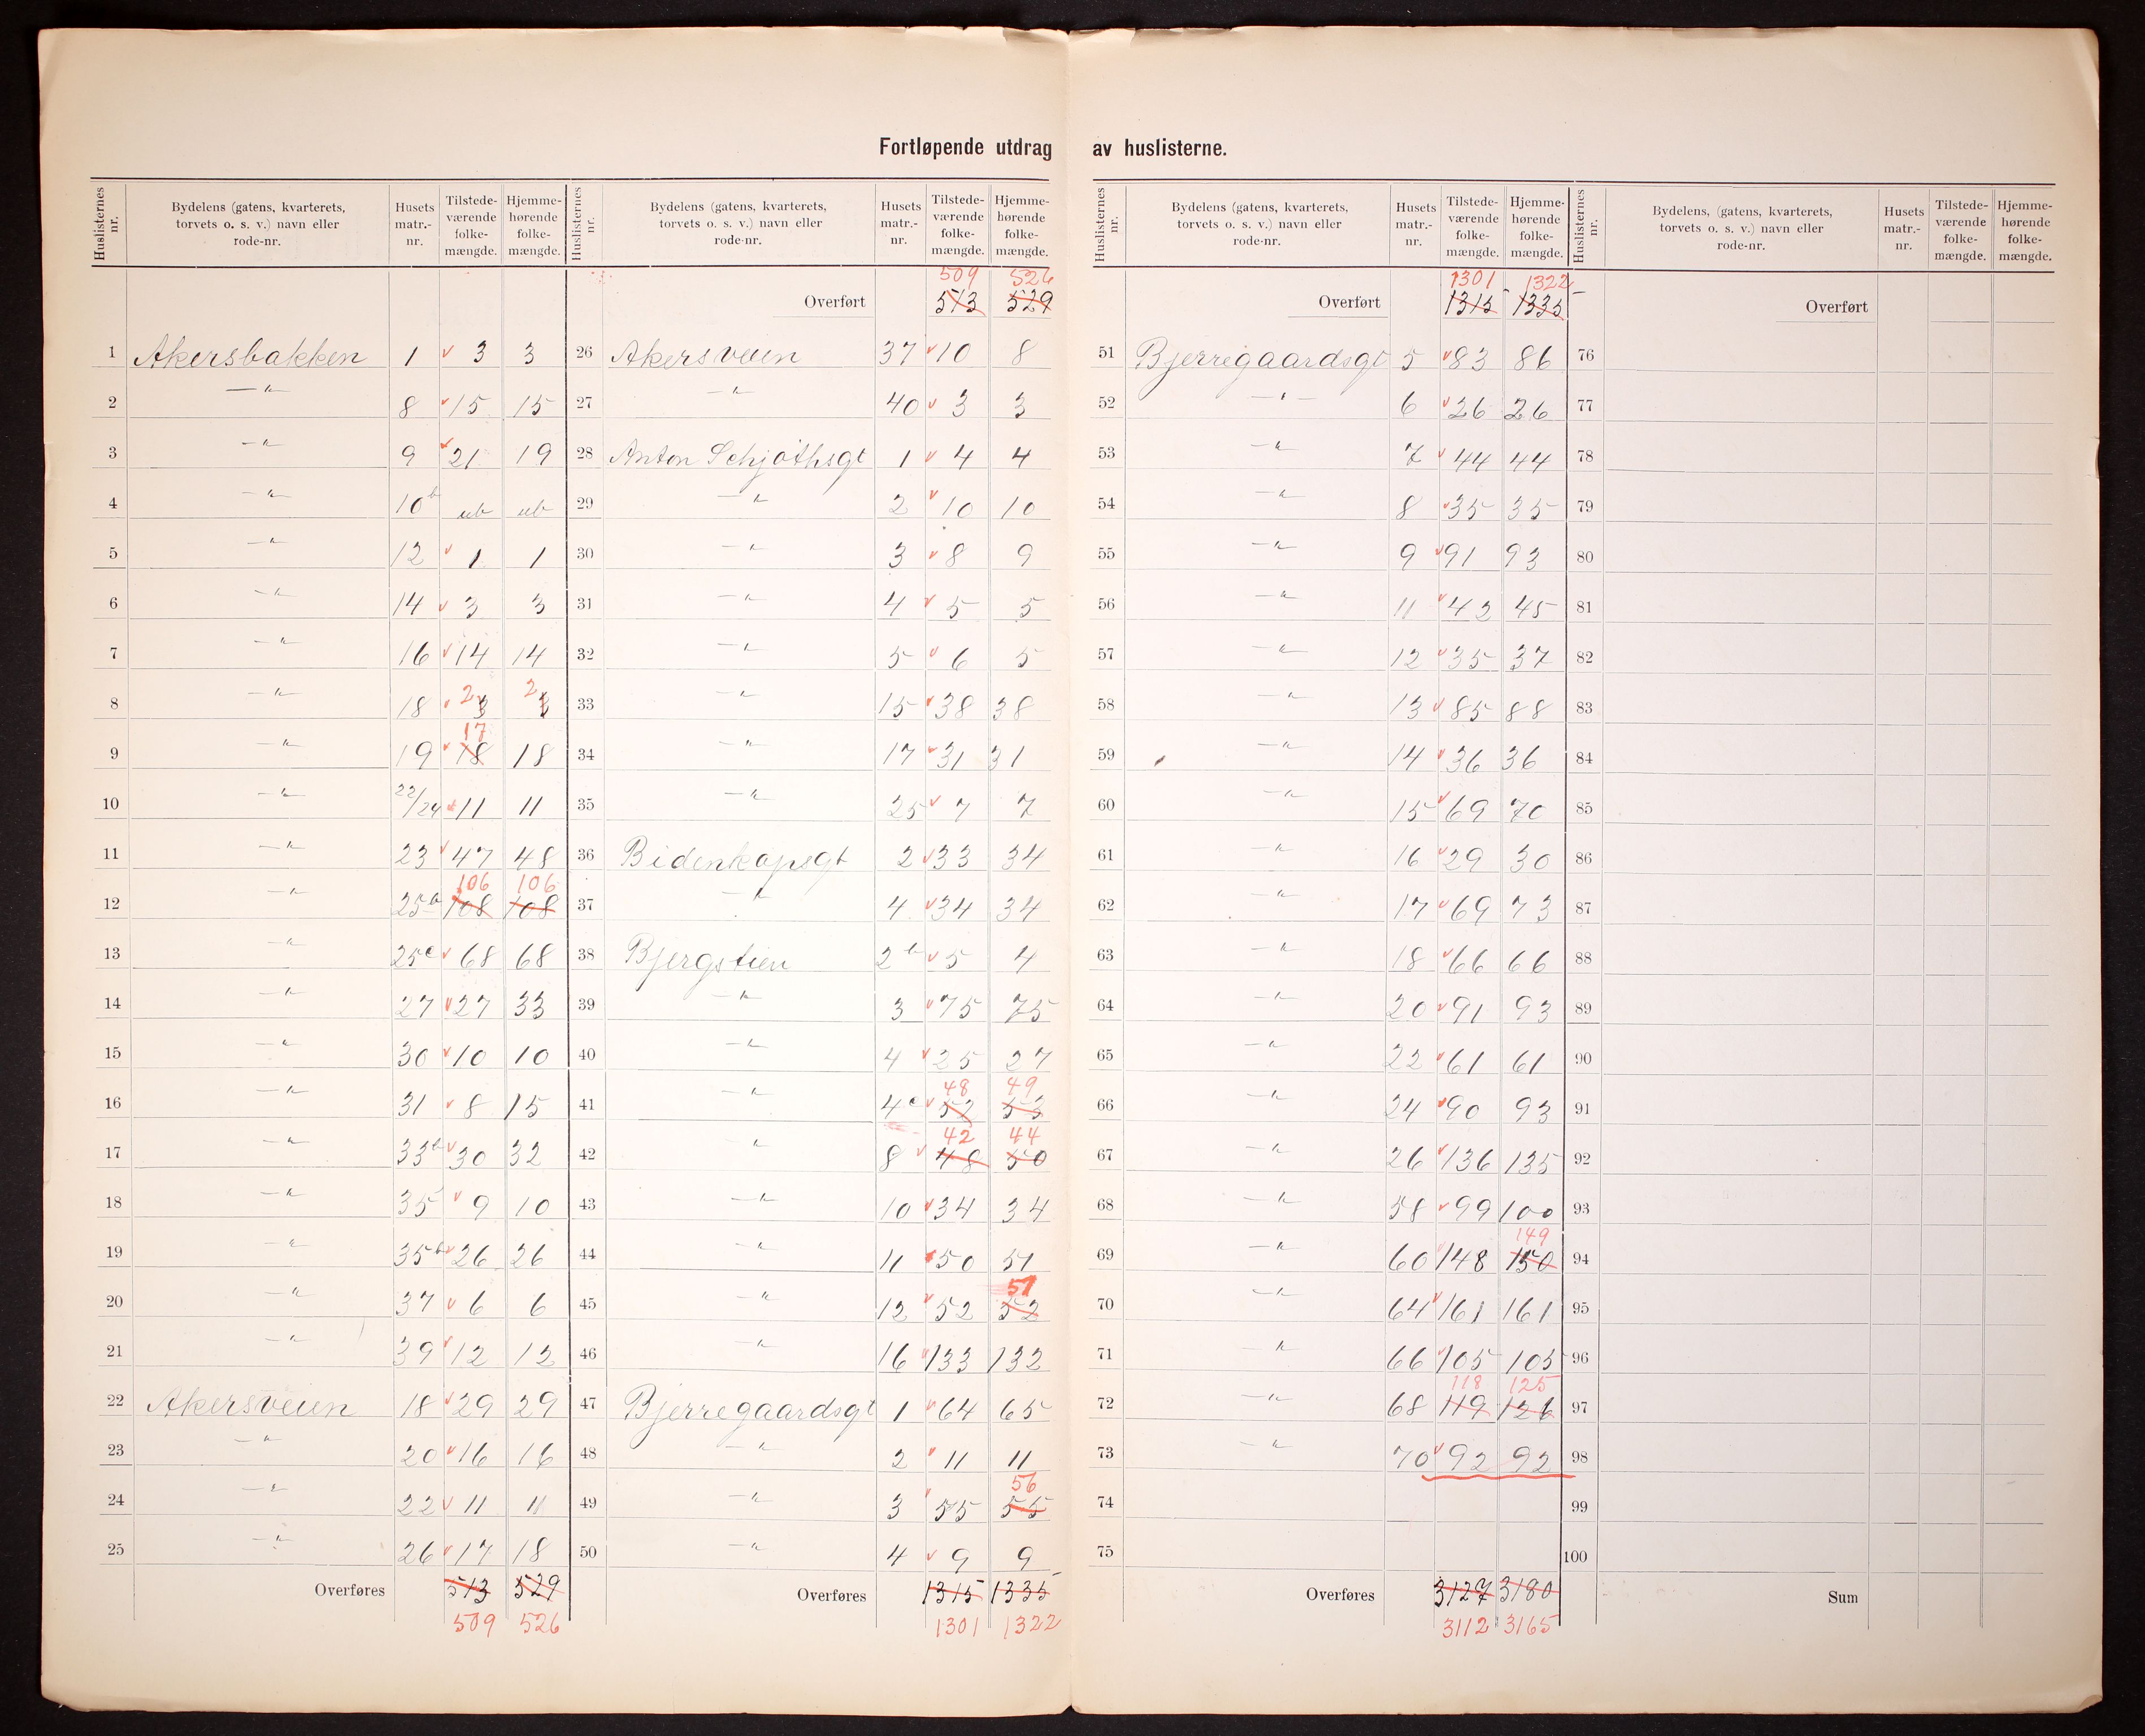 Fortløpende utdrag av huslisterne.
Huslisternes nr. | Bydelens (gatens, kvarterets, torvets o. s. v.) navn eller rode-nr. | Husets matr.-nr. | Tilstede-værende folke-mængde. | Hjemme-hørende folke-mængde.
1 Akersbakken 1 3 3
2 —"— 8 15 15
3 —"— 9 21 19
4 —"— 10b ub ub
5 —"— 12 1 1
6 —"— 14 3 3
7 —"— 16 14 14
8 —"— 18 3 2 3 2
9 —"— 19 18 17 18
10 —"— 22/24 11 11
11 —"— 23 47 48
12 —"— 25b 108 106 108 106
13 —"— 25c 68 68
14 —"— 27 27 33
15 —"— 30 10 10
16 —"— 31 8 15
17 —"— 33b 30 32
18 —"— 35 9 10
19 —"— 35b 26 26
20 —"— 37 6 6
21 —"— 39 12 12
22 Akersveien 18 29 29
23 —"— 20 16 16
24 —"— 22 11 11
25 —"— 26 17 18
Overføres 513 529
509 526
Huslisternes nr. | Bydelens (gatens, kvarterets, torvets o. s. v.) navn eller rode-nr. | Husets matr.-nr. | Tilstede-værende folke-mængde. | Hjemme-hørende folke-mængde.
509 526
Overført 513 529
26 Akersveien 37 10 8
27 —"— 40 3 3
28 Anton Schjøthsgt 1 4 4
29 —"— 2 10 10
30 —"— 3 8 9
31 —"— 4 5 5
32 —"— 5 6 5
33 —"— 15 38 38
34 —"— 17 31 31
35 —"— 25 7 7
36 Bidenkapsgt 2 33 34
37 —"— 4 34 34
38 Bjergstien 2b 5 4
39 —"— 3 75 75
40 —"— 4 25 27
41 —"— 4c 52 48 53 49
42 —"— 8 48 42 50 44
43 —"— 10 34 34
44 —"— 11 50 51
45 —"— 12 52 52 51
46 —"— 16 133 132
47 Bjerregaardsgt 1 64 65
48 —"— 2 11 11
49 —"— 3 55 55 56
50 —"— 4 9 9
Overføres 1315 1335
1301 1322
Huslisternes nr. | Bydelens (gatens, kvarterets, torvets o. s. v.) navn eller rode-nr. | Husets matr.-nr. | Tilstede-værende folke-mængde. | Hjemme-hørende folke-mængde.
1301 1322
Overført 1315 1335
51 Bjerregaardsgt 5 83 86
52 —"— 6 26 26
53 —"— 7 44 44
54 —"— 8 35 35
55 —"— 9 91 93
56 —"— 11 42 45
57 —"— 12 35 37
58 —"— 13 85 88
59 —"— 14 36 36
60 —"— 15 69 70
61 —"— 16 29 30
62 —"— 17 69 73
63 —"— 18 66 66
64 —"— 20 91 93
65 —"— 22 61 61
66 —"— 24 90 93
67 —"— 26 136 135
68 —"— 58 99 100
69 —"— 60 148 150 149
70 —"— 64 161 161
71 —"— 66 105 105
72 —"— 68 119 118 126 125
73 —"— 70 92 92
74
75
Overføres 3127 3180
3112 3165
Huslisternes nr. | Bydelens, (gatens, kvarterets, torvets o. s. v.) navn eller rode-nr. | Husets matr.-nr. | Tilstede-værende folke-mængde. | Hjemme-hørende folke-mængde.
Overført
76
77
78
79
80
81
82
83
84
85
86
87
88
89
90
91
92
93
94
95
96
97
98
99
100
Sum